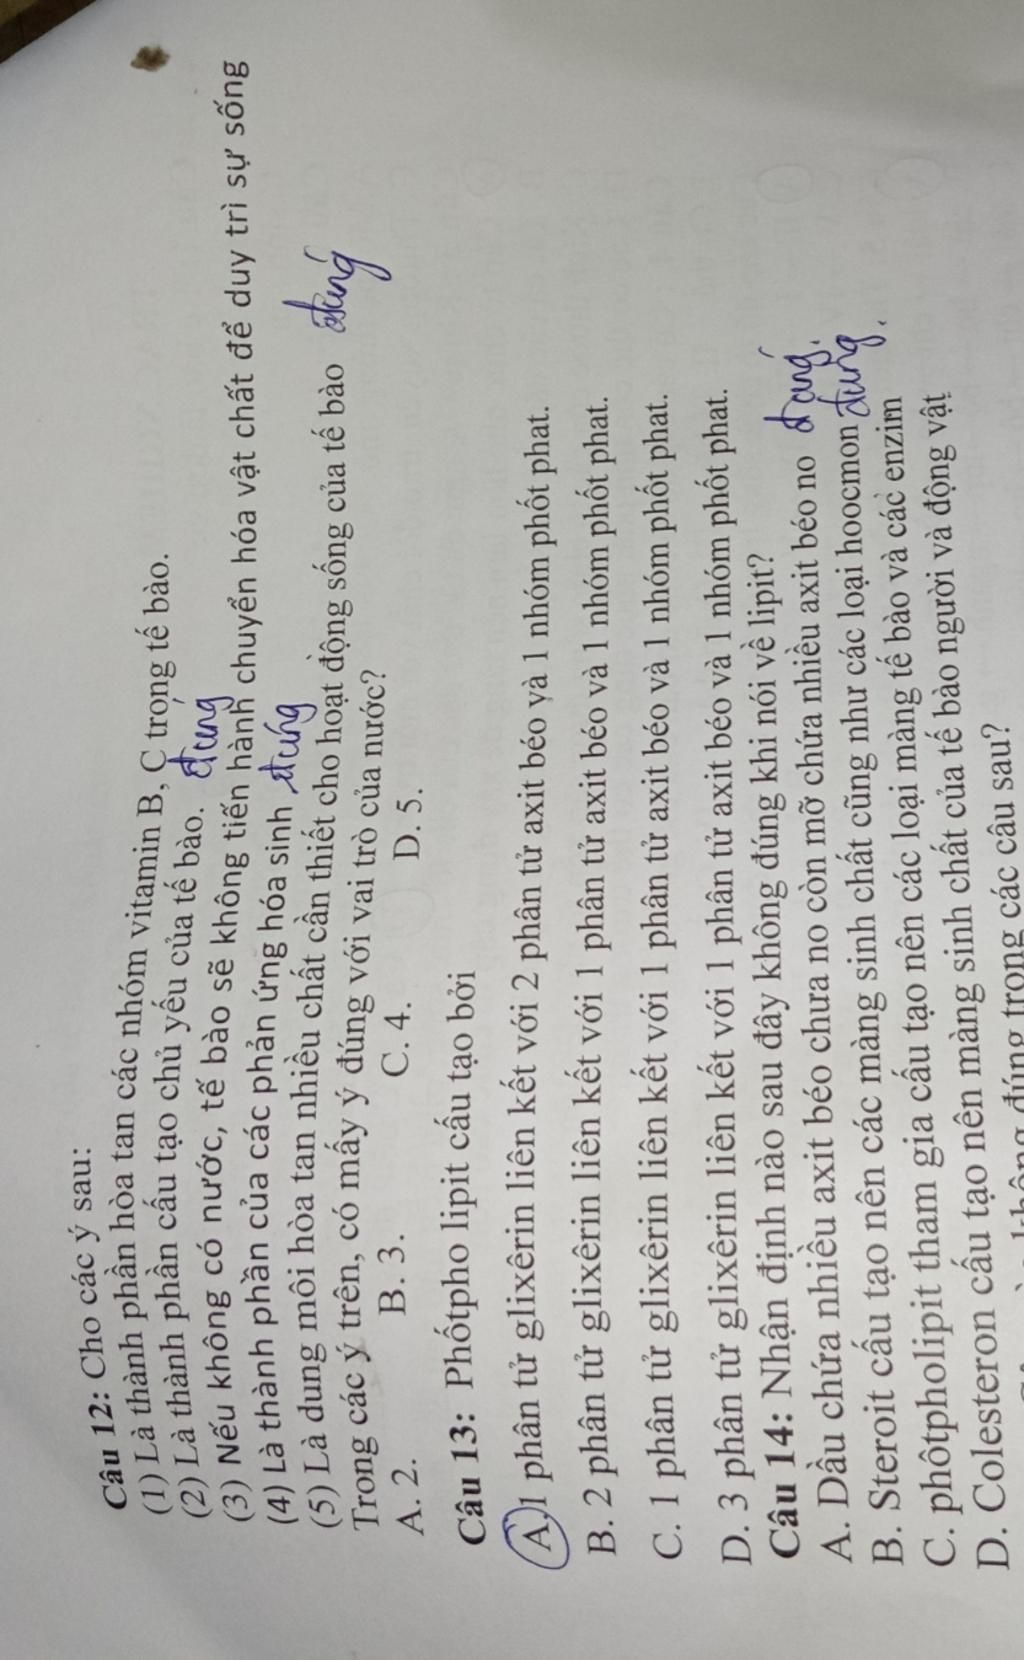 Câu 12: Cho các ý sau:
(1) Là thành phần hòa tan các nhóm vitamin B, C trong tế bào.
(2) Là thành phần cấu tạo chủ yếu của tế bào. đúng
(3) Nếu không có nước, tế bào sẽ không tiến hành chuyển hóa vật chất để duy trì sự sống
(4) Là thành phần của các phản ứng hóa sinh đúng
(5) Là dung môi hòa tan nhiều chất cần thiết cho hoạt động sống của tế bào đúng
Trong các ý trên, có mấy ý đúng với vai trò của nước?
A. 2. B. 3. C. 4. D. 5.
Câu 13: Phốtpho lipit cấu tạo bởi
A. 1 phân tử glixêrin liên kết với 2 phân tử axit béo và 1 nhóm phốt phat.
B. 2 phân tử glixêrin liên kết với 1 phân tử axit béo và 1 nhóm phốt phat.
C. 1 phân tử glixêrin liên kết với 1 phân tử axit béo và 1 nhóm phốt phat.
D. 3 phân tử glixêrin liên kết với 1 phân tử axit béo và 1 nhóm phốt phat.
Câu 14: Nhận định nào sau đây không đúng khi nói về lipit?
A. Dầu chứa nhiều axit béo chưa no còn mỡ chứa nhiều axit béo no đúng.
B. Steroit cấu tạo nên các màng sinh chất cũng như các loại hoocmon đúng.
C. phôtpholipit tham gia cấu tạo nên các loại màng tế bào và các enzim
D. Colesteron cấu tạo nên màng sinh chất của tế bào người và động vật
đúng trong các câu sau?